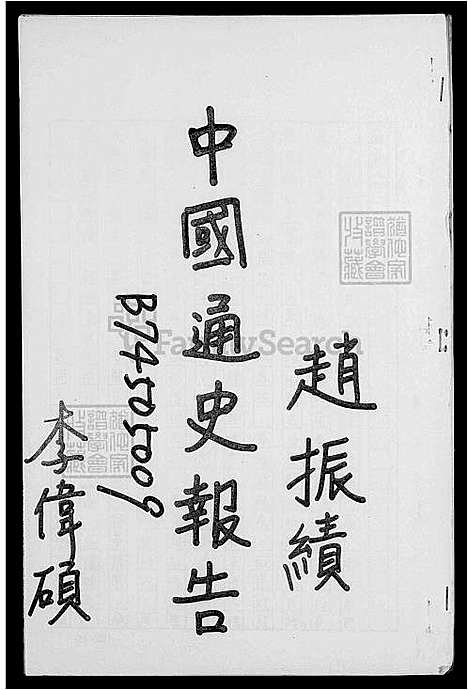 趙振績
中國通史報告
B74505009
李偉碩
FamilySearch